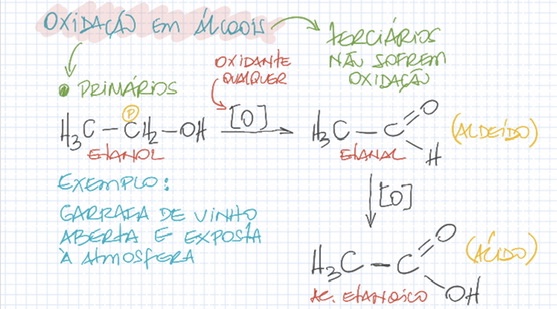 OXIDAÇÃO EM ÁLCOOIS
TERCIÁRIOS
NÃO SOFREM
OXIDAÇÃO
• PRIMÁRIOS
OXIDANTE
QUALQUER
P
H₃C – CH₂ – OH
[O]
ETANOL
H₃C – C
O
H
(ALDEÍDO)
ETANAL
EXEMPLO:
GARRAFA DE VINHO
ABERTA E EXPOSTA
À ATMOSFERA
[O]
H₃C – C
O
OH
(ÁCIDO)
ÁC. ETANOICO